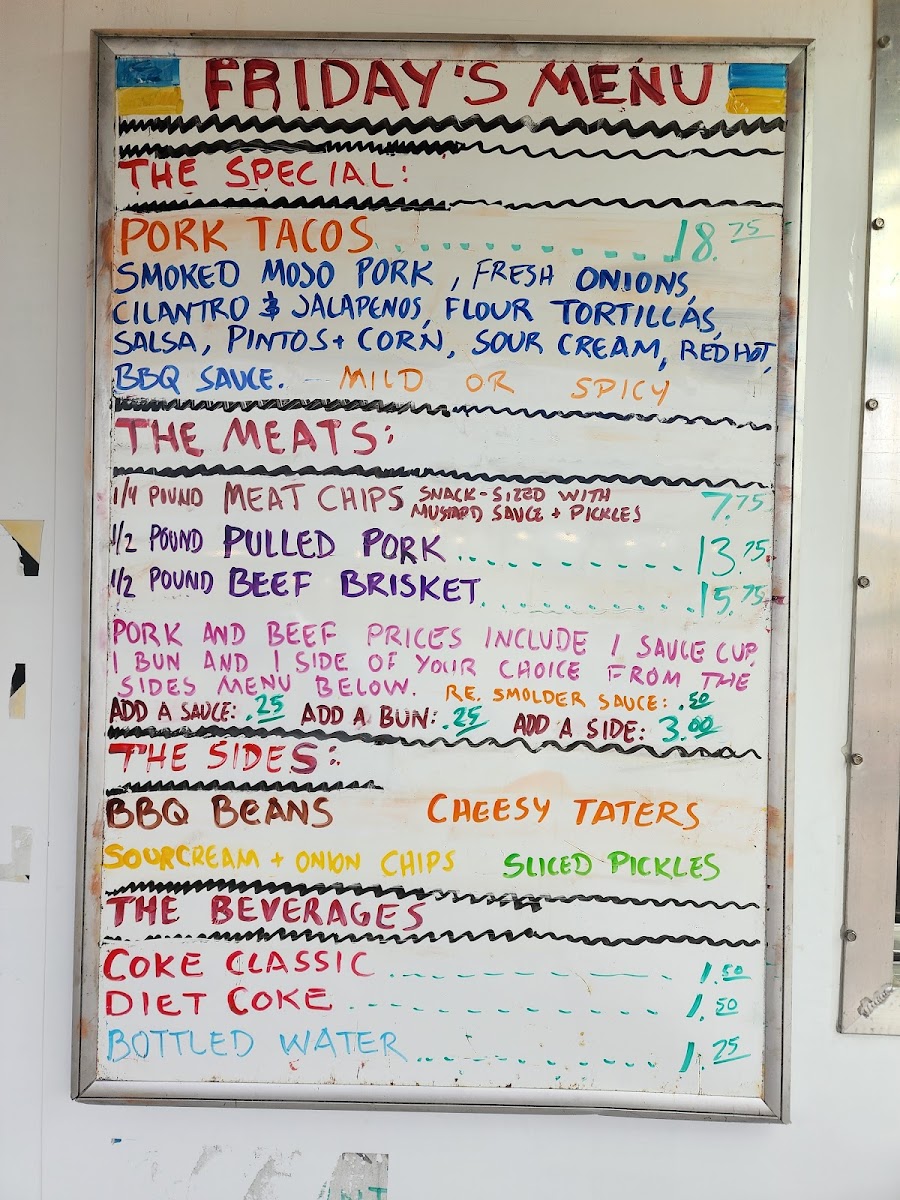 FRIDAY'S MENU
THE SPECIAL:
PORK TACOS..........18.75
SMOKED MOJO PORK, FRESH ONIONS,
CILANTRO & JALAPENOS, FLOUR TORTILLAS,
SALSA, PINTOS + CORN, SOUR CREAM, RED HOT,
BBQ SAUCE. MILD OR SPICY
THE MEATS:
1/4 POUND MEAT CHIPS SNACK-SIZED WITH 7.75
MUSTARD SAUCE + PICKLES
1/2 POUND PULLED PORK..........13.75
1/2 POUND BEEF BRISKET..........15.75
PORK AND BEEF PRICES INCLUDE 1 SAUCE CUP,
1 BUN AND 1 SIDE OF YOUR CHOICE FROM THE
SIDES MENU BELOW. RE. SMOLDER SAUCE: .50
ADD A SAUCE: .25 ADD A BUN: .25 ADD A SIDE: 3.00
THE SIDES:
BBQ BEANS CHEESY TATERS
SOURCREAM + ONION CHIPS SLICED PICKLES
THE BEVERAGES
COKE CLASSIC..........1.50
DIET COKE..........1.50
BOTTLED WATER..........1.25